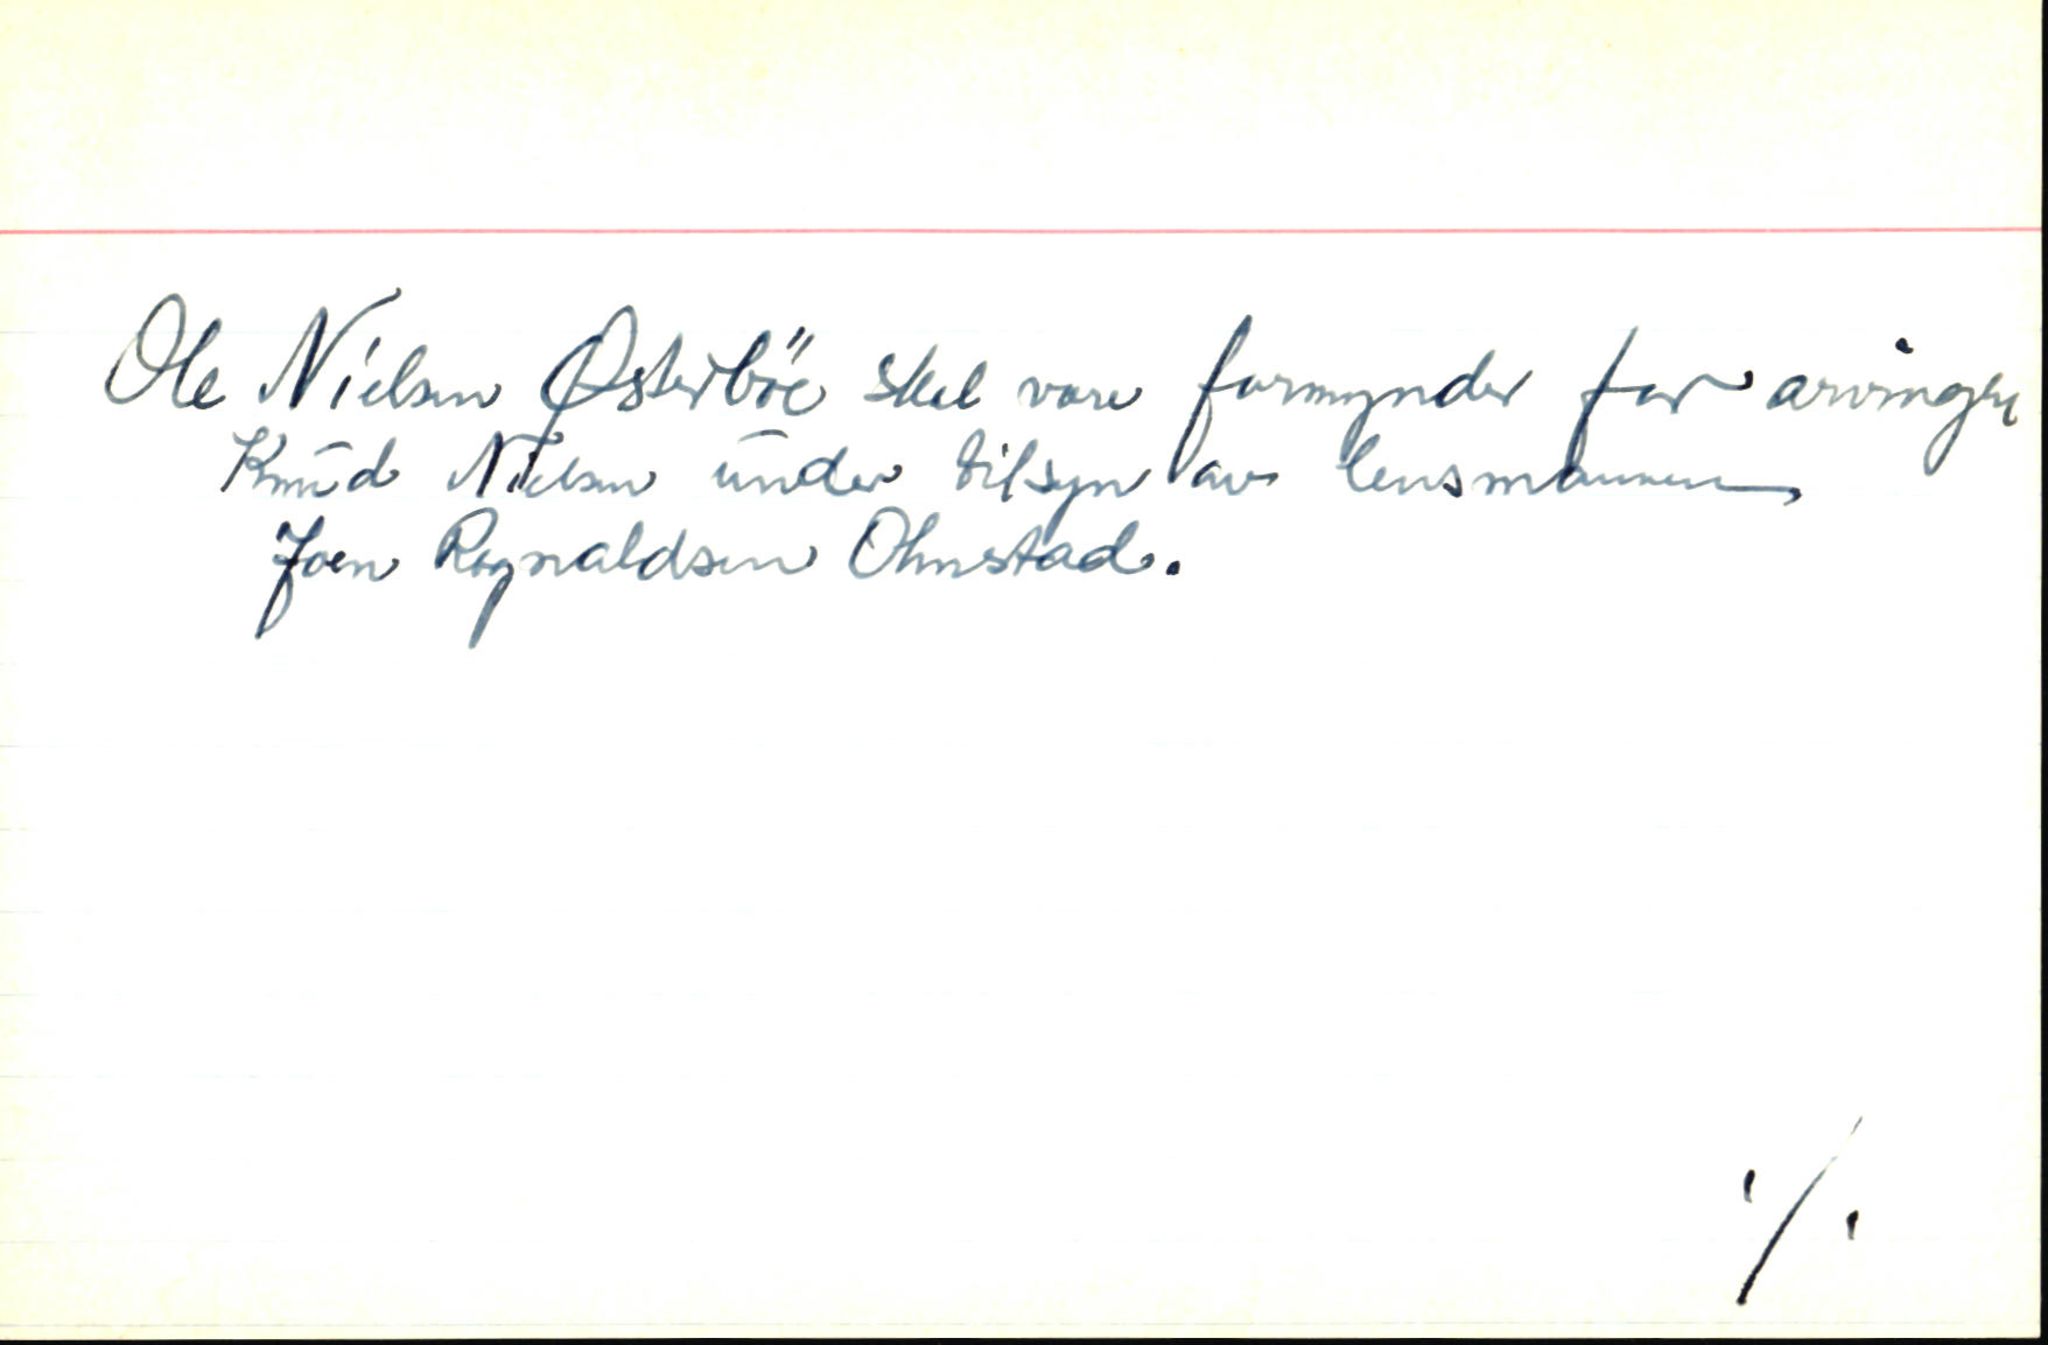 Ole Nielsen Østerböe skal vare formynder for arvingen
Knud Nielsen under tilsyn av lensmannen
Joen Rognaldsen Ohmstad.
·/·